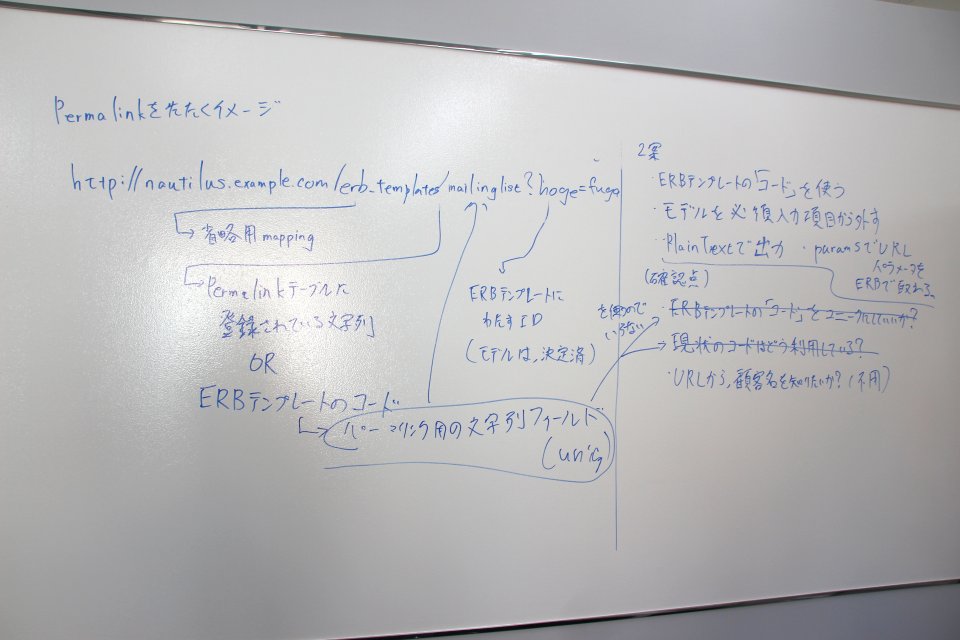 Permalinkをたたくイメージ
http://nautilus.example.com/erb_templates/mailinglist?hoge=fuga
省略用mapping
Permalinkテーブルに
登録されている文字列
OR
ERBテンプレートのコード
パーマリンク用の文字列フィールド
(uniq)
ERBテンプレートに
わたすID
(モデルは、決定済)
2案
・ERBテンプレートの「コード」を使う
・モデルを必須入力項目から外す
・PlainTextで出力 ・paramsでURL
パラメータを
ERBで取れる。
(確認点)
を使うので
いらない
・ERBテンプレートの「コード」をユニークにしていいか?
現状のコードはどう利用している?
・URLから、顧客名を知りたいか?(不用)